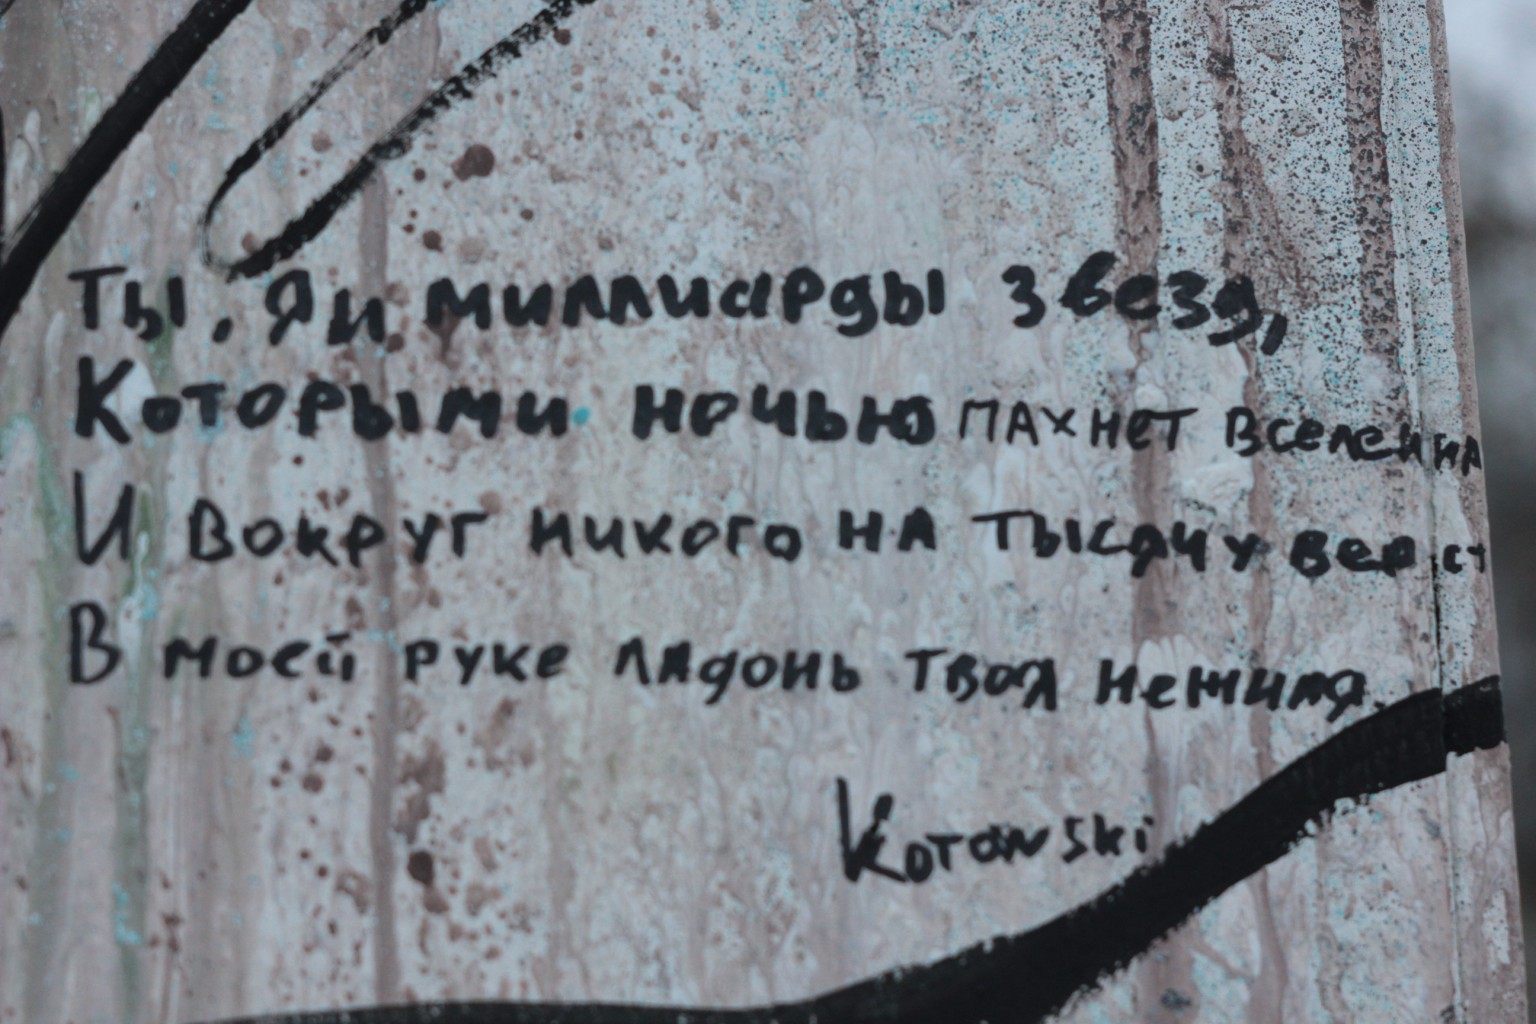 Ты, я и миллиарды звезд,
Которыми ночью пахнет вселенная
И вокруг никого на тысячу верст
В моей руке ладонь твоя нежила.
Kotowski